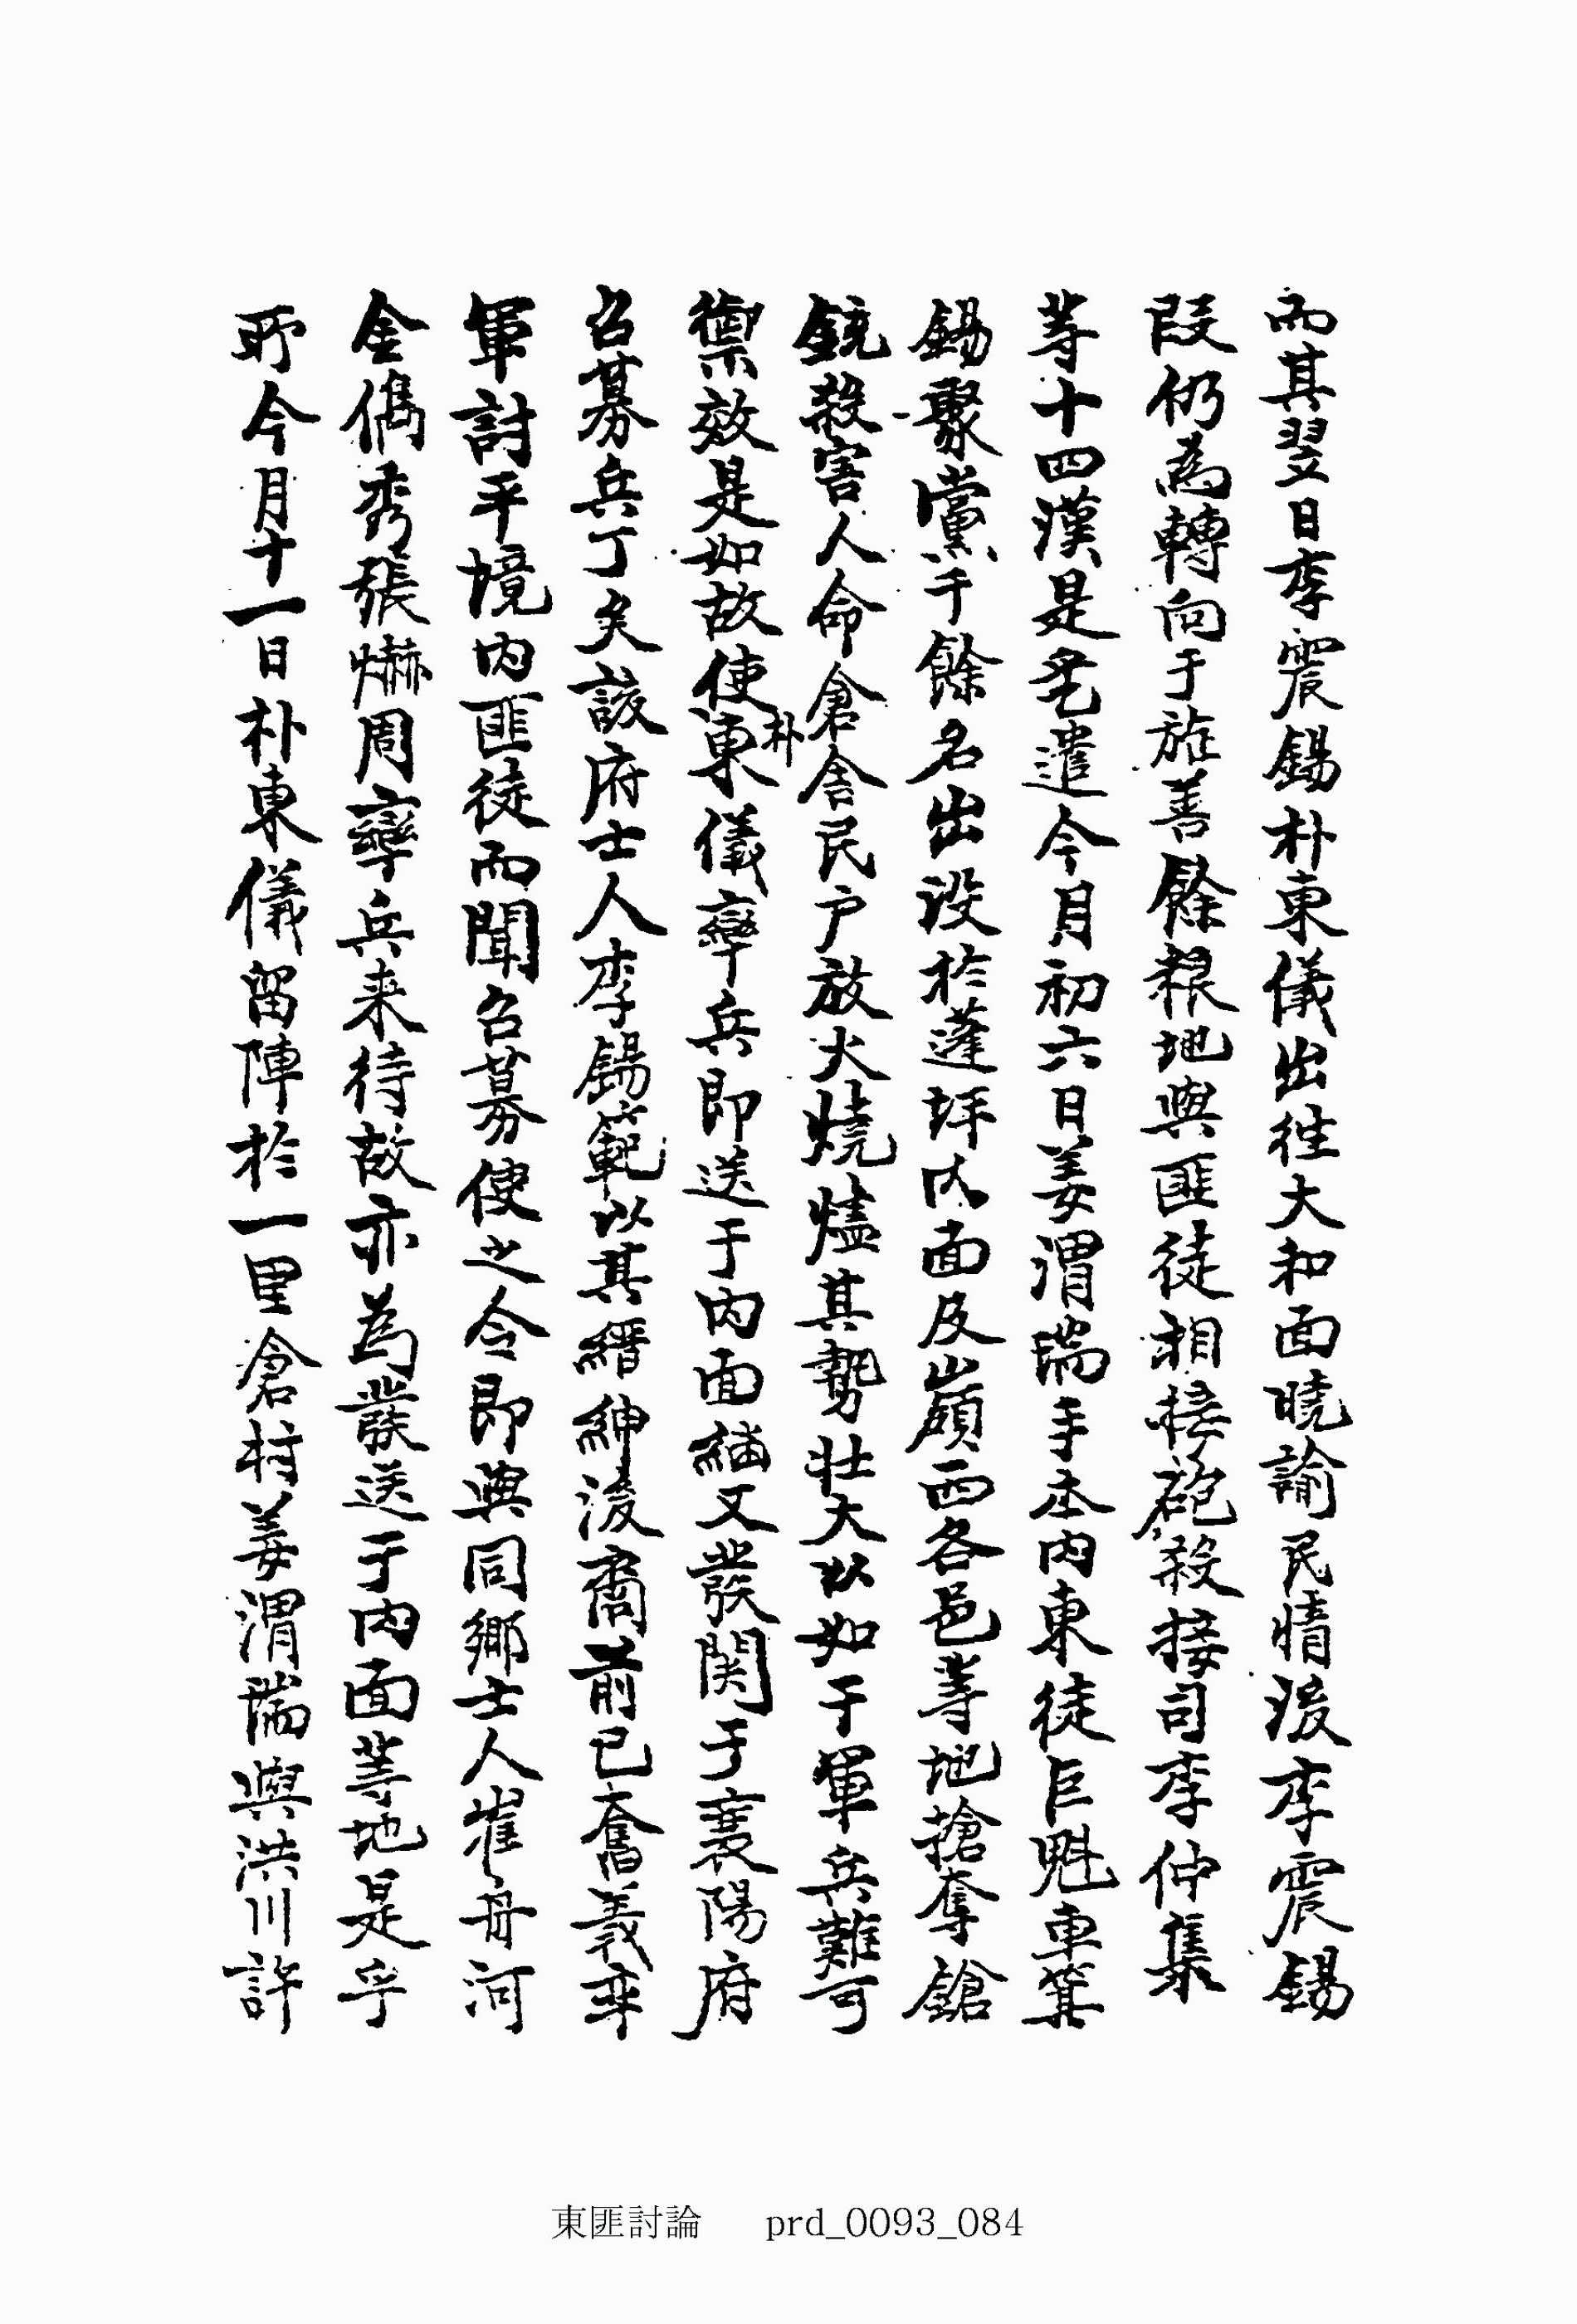 而其翌日李震錫朴東儀出往大和面曉諭民情後李震錫
段仍爲轉向于旌善餘粮地與匪徒相接砲殺接司李仲集
等十四漢是乎遣今月初六日姜渭瑞手本內東徒巨魁車箕
錫聚黨千餘名出沒於蓬坪內面及嶺西各邑等地搶奪鎗
銃殺害人命倉舍民戶放火燒燼其勢壯大以如干軍兵難可
禦效是如故使朴東儀率兵即送于內面繼又發関于襄陽府
召募兵丁矣該府士人李錫範以其縉紳後裔前已奮義率
軍討平境內匪徒而聞召募使之令即與同鄉士人崔舟河
金儁秀張爀周率兵来待故亦爲發送于內面等地是乎
所今月十一日朴東儀留陣於一里倉村姜渭瑞與洪川許
東匪討論 prd_0093_084